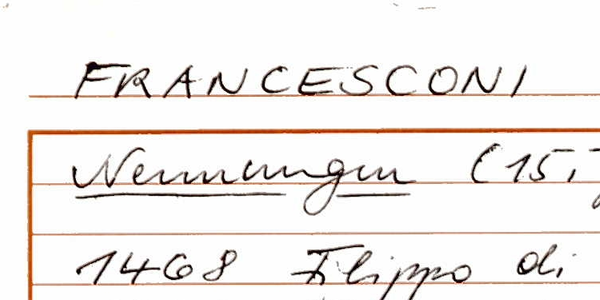 FRANCESCONI
Nennungen (15.
1468 Filippo di